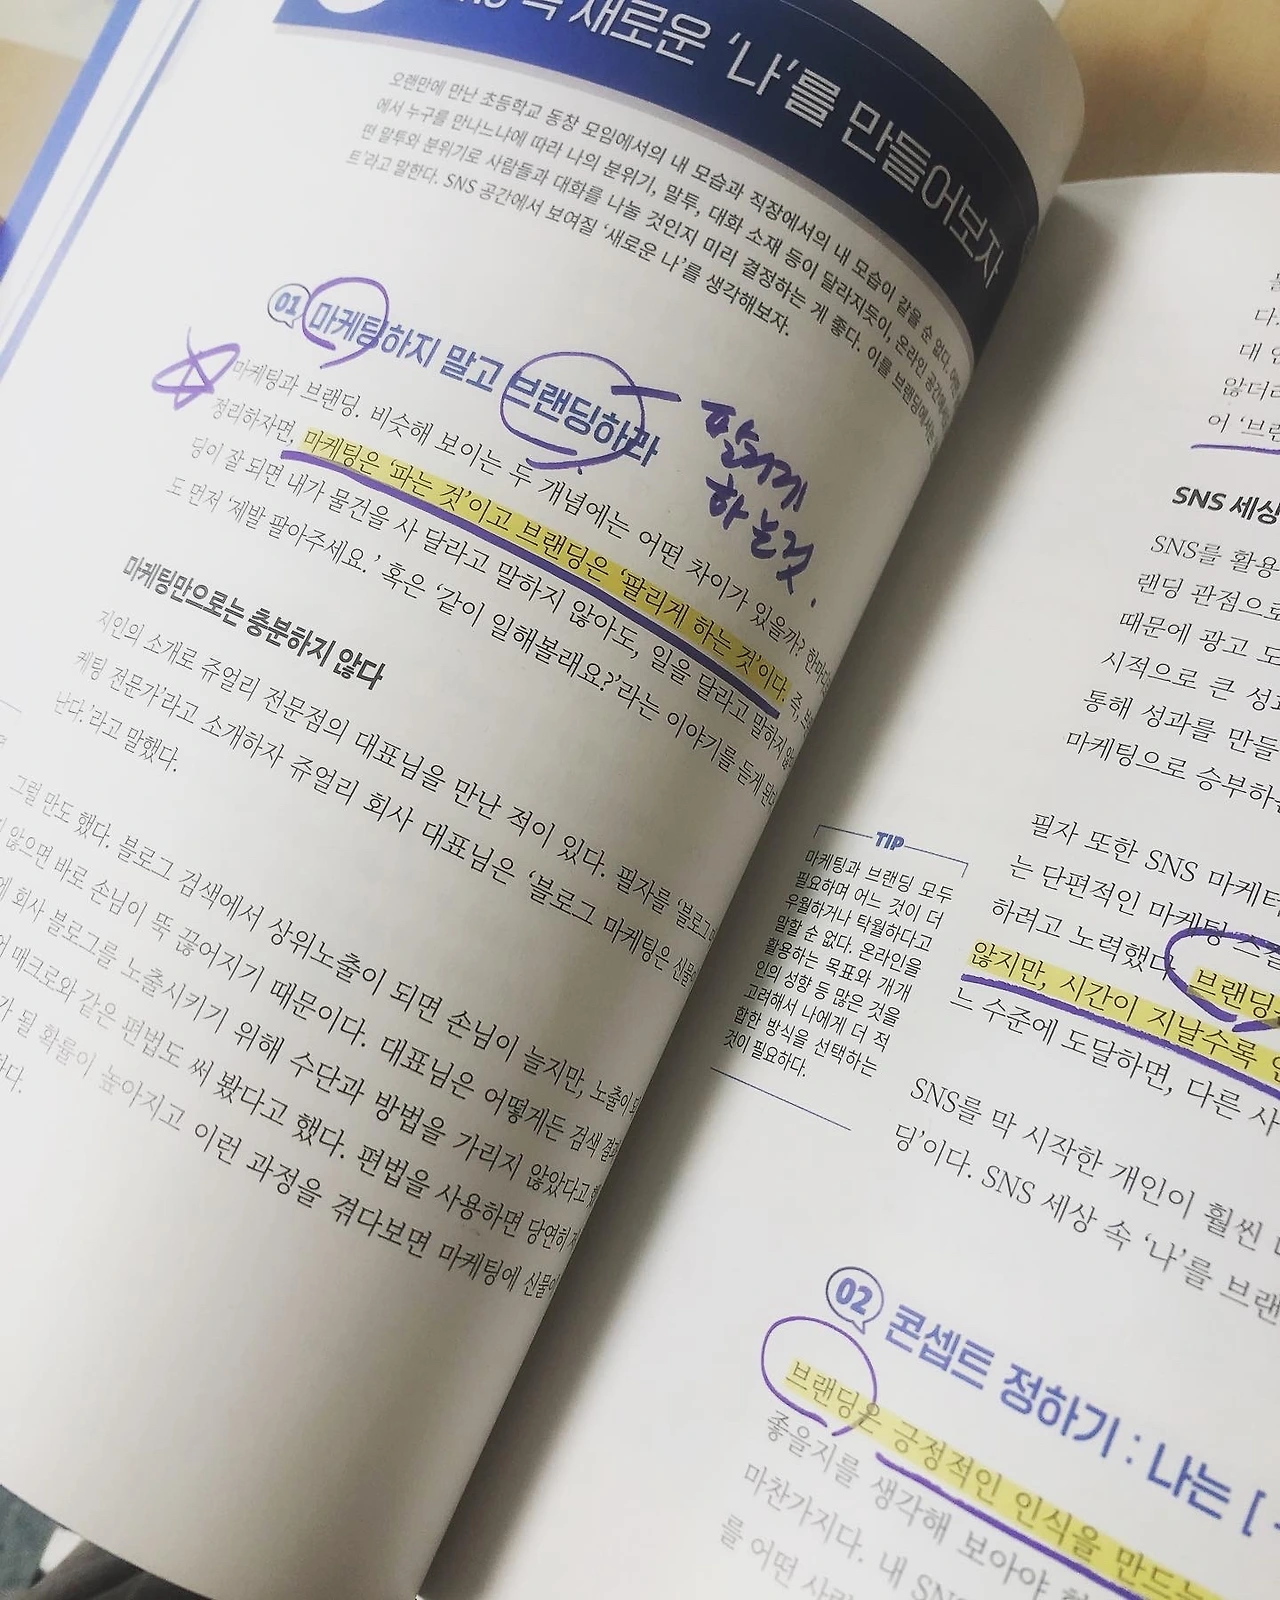 속 새로운 '나'를 만들어보자
오랜만에 만난 초등학교 동창 모임에서의 내 모습과 직장에서의 내 모습이 같을 순 없다.
에서 누구를 만나느냐에 따라 나의 분위기, 말투, 대화 소재 등이 달라지듯이, 온라인 공간에서
떤 말투와 분위기로 사람들과 대화를 나눌 것인지 미리 결정하는 게 좋다. 이를 브랜딩에서는
트'라고 말한다. SNS 공간에서 보여질 '새로운 나'를 생각해보자.
01 마케팅하지 말고 브랜딩하라
팔리게
하는것.
마케팅과 브랜딩. 비슷해 보이는 두 개념에는 어떤 차이가 있을까? 한마디
정리하자면, 마케팅은 '파는 것'이고 브랜딩은 '팔리게 하는 것'이다. 즉,
딩이 잘 되면 내가 물건을 사 달라고 말하지 않아도, 일을 달라고 말하지
도 먼저 '제발 팔아주세요.' 혹은 '같이 일해볼래요?'라는 이야기를 듣게 된다
마케팅만으로는 충분하지 않다
지인의 소개로 쥬얼리 전문점의 대표님을 만난 적이 있다. 필자를 '블로그
케팅 전문가'라고 소개하자 쥬얼리 회사 대표님은 '블로그 마케팅은 신물
난다.'라고 말했다.
그럴 만도 했다. 블로그 검색에서 상위노출이 되면 손님이 늘지만, 노출이
않으면 바로 손님이 뚝 끊어지기 때문이다. 대표님은 어떻게든 검색 결과
에 회사 블로그를 노출시키기 위해 수단과 방법을 가리지 않았다고
매크로와 같은 편법도 써 봤다고 했다. 편법을 사용하면 당연히
가 될 확률이 높아지고 이런 과정을 겪다보면 마케팅에 신물이
다.
대
않더라
어 '브랜
SNS 세상
SNS를 활용
랜딩 관점으로
때문에 광고 도
시적으로 큰 성과
통해 성과를 만들
마케팅으로 승부하
필자 또한 SNS 마케터
는 단편적인 마케팅 스킬
하려고 노력했다. 브랜딩은
않지만, 시간이 지날수록
느 수준에 도달하면, 다른 사
TIP
마케팅과 브랜딩 모두
필요하며 어느 것이 더
우월하거나 탁월하다고
말할 순 없다. 온라인을
활용하는 목표와 개개
인의 성향 등 많은 것을
고려해서 나에게 더 적
합한 방식을 선택하는
것이 필요하다.
SNS를 막 시작한 개인이 훨씬
딩'이다. SNS 세상 속 '나'를 브랜
02 콘셉트 정하기 : 나는 [
브랜딩은 긍정적인 인식을 만드는
좋을지를 생각해 보아야 한
마찬가지다. 내 SN
를 어떤 사람